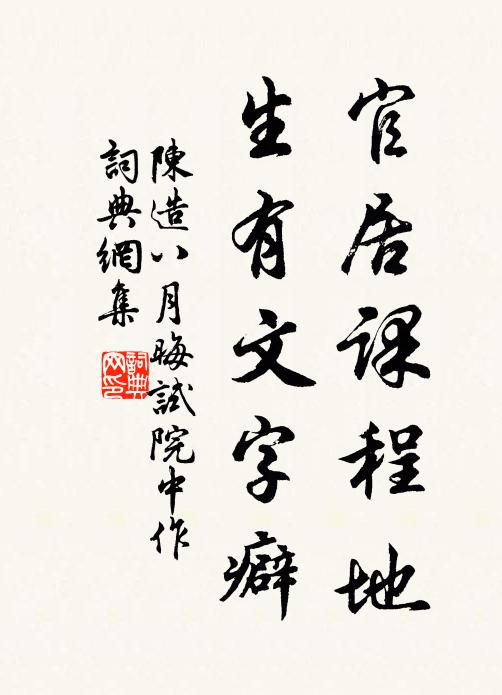 官居課程地
生有文字癖
陳造八月晦試院中作
詞典網集
詞典網印